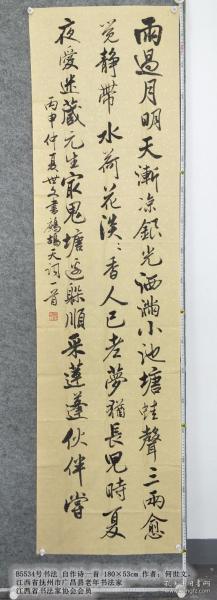 雨過月明天漸凉銀光洒满小池塘蛙聲三兩愈
覺静带水荷花淡々香人已老夢猶長兒時夏
夜愛迷藏元生家鬼塘邊躲順采蓮蓬伙伴嘗
丙申仲夏世文書鷓鴣天詞一首
B5534号书法 自作诗一首 180×53cm 作者：何世文，
江西省抚州市广昌县老年书法家
江西省书法家协会会员